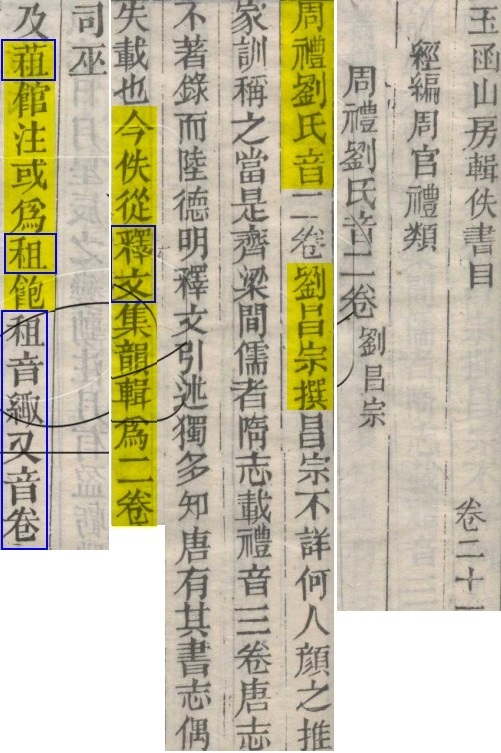 玉函山房輯佚書目
經編周官禮類
卷二十一
周禮劉氏音二卷 劉昌宗
周禮劉氏音二卷劉昌宗撰昌宗不詳何人顏之推
家訓稱之當是齊梁間儒者隋志載禮音三卷唐志
不著錄而陸德明釋文引述獨多知唐有其書志偶
失載也今佚從釋文集韻輯爲二卷
司巫
及蒩館注或爲租飽租音緅又音卷